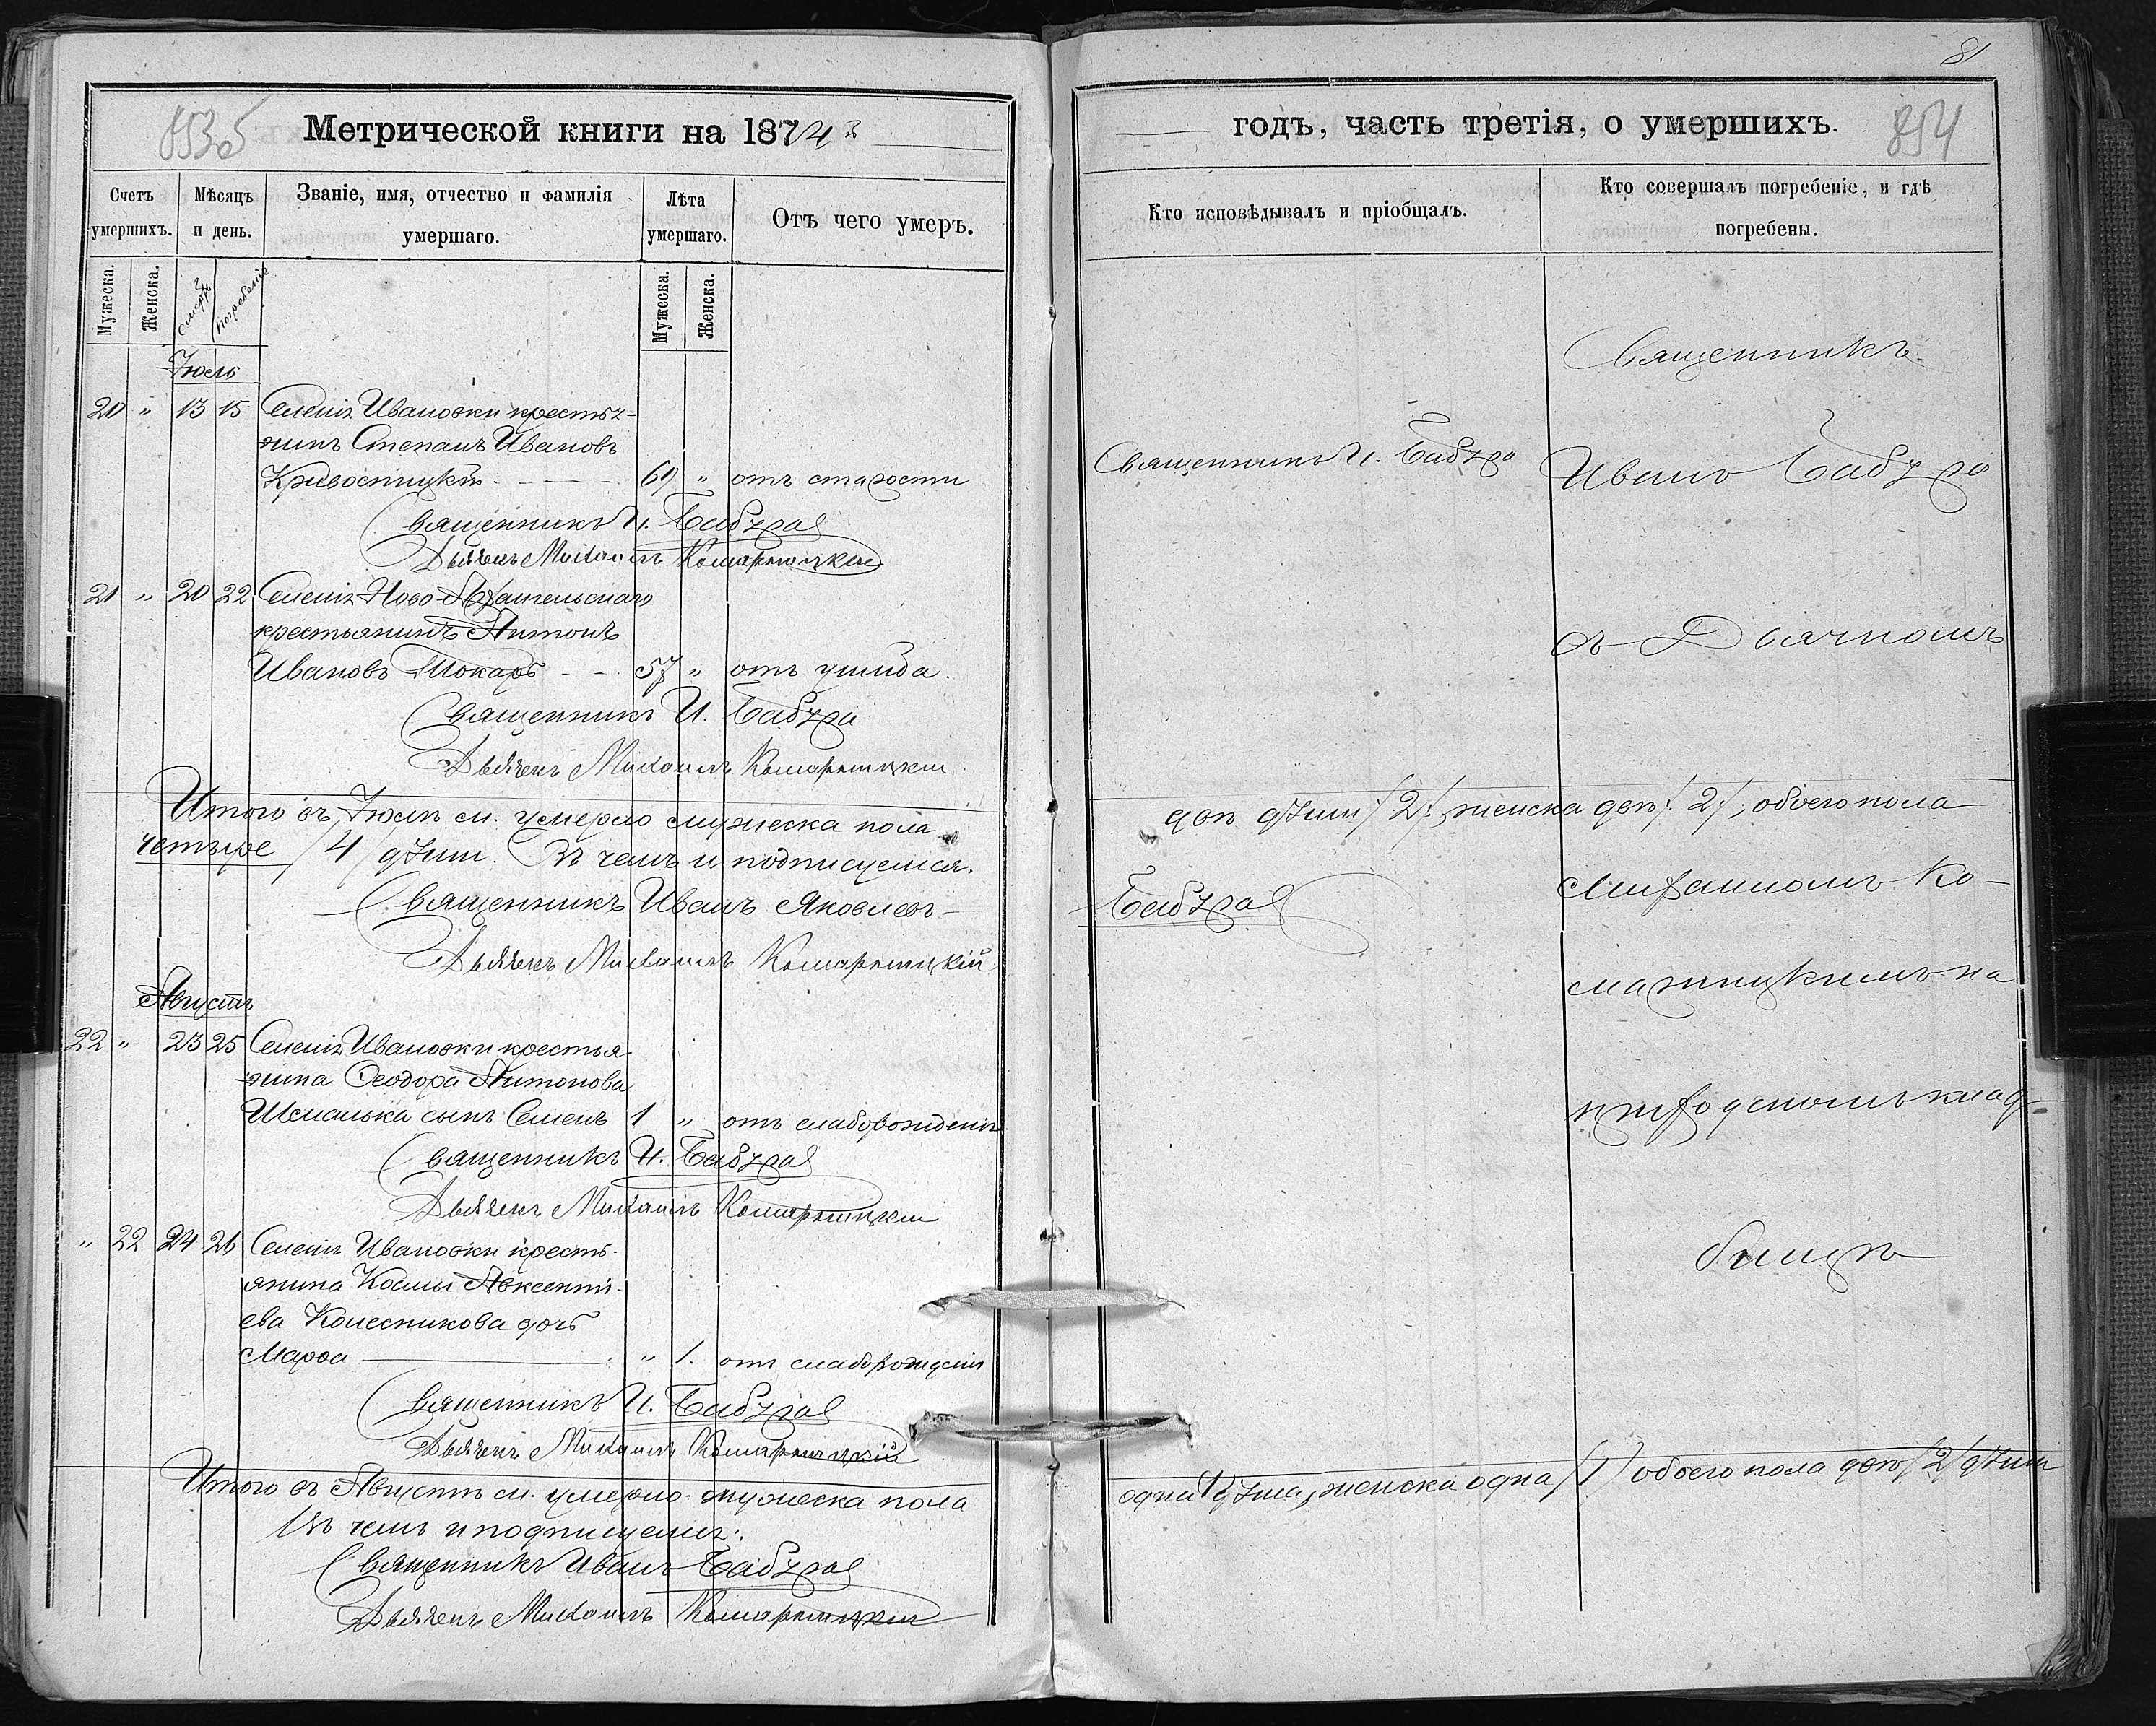 853 об
Метрической книги на 1874й
Счетъ умершихъ.
Мѣсяцъ и день.
Званіе, имя, отчество и фамилія умершаго.
Лѣта умершаго.
Отъ чего умеръ.
Мужеска.
Женска.
смерть
погребеніе
Мужеска.
Женска.
Іюль
20 " 13 15 Селенія Ивановки крестья-
нинъ Степанъ Ивановъ
69 " отъ старости
Священникъ И. Бабура
Дьячекъ Михаилъ Комарницкій
21 " 20 22 Селенія Ново-Архангельскаго
крестьянинъ Антонъ
Ивановъ Токарь - - 57 " отъ ушиба.
Священникъ И. Бабура
Дьячекъ Михаилъ Комарницкій
Итого въ Іюлѣ м. умерло мужеска пола
четыре /4/ души. Въ чемъ и подписуемся.
Священникъ Иванъ Яковлевъ
Дьячекъ Михаилъ Комарницкій
Августъ
22 " 23 25 Селенія Ивановки крестья-
нина Ѳеодора Антонова
Шмалька сынъ Семенъ 1 " отъ слаборожденія
Священникъ И. Бабура
Дьячекъ Михаилъ Комарницкій
" 22 24 26 Селенія Ивановки кресть-
янина Космы Авксенті-
ева Колесникова дочь
Марѳа " 1. отъ слаборожденія
Священникъ И. Бабура
Дьячекъ Михаилъ Комарницкій
Итого въ Августѣ м. умерло: мужеска пола
Въ чемъ и подписуемся:
Священникъ Иванъ Бабура
Дьячекъ Михаилъ Комарницкій
81
годъ, часть третія, о умершихъ.
854
Кто исповѣдывалъ и пріобщалъ.
Кто совершалъ погребеніе, и гдѣ погребены.
Священникъ
Священникъ И. Бабура
Иванъ Бабура
съ Дьячкомъ
двѣ души /2/, женска двѣ /2/, обоего пола
Бабура
Михаиломъ Ко-
марницкимъ на
приходскомъ клад-
бищѣ
одна 1 душа, женска одна /1/ обоего пола двѣ /2/ души